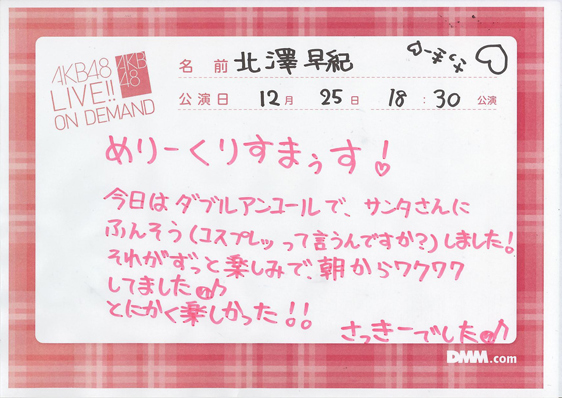 AKB48
LIVE!!
ON DEMAND
AKB
48
名前 北澤早紀
公演日 12月 25日 18:30 公演
めりーくりすまぅす!
今日はダブルアンコールで、サンタさんに
ふんそう(コスプレッって言うんですか?)しました!
それがずっと楽しみで、朝からワクワク
してました♪
とにかく楽しかった!!
さっきーでした♪
DMM.com